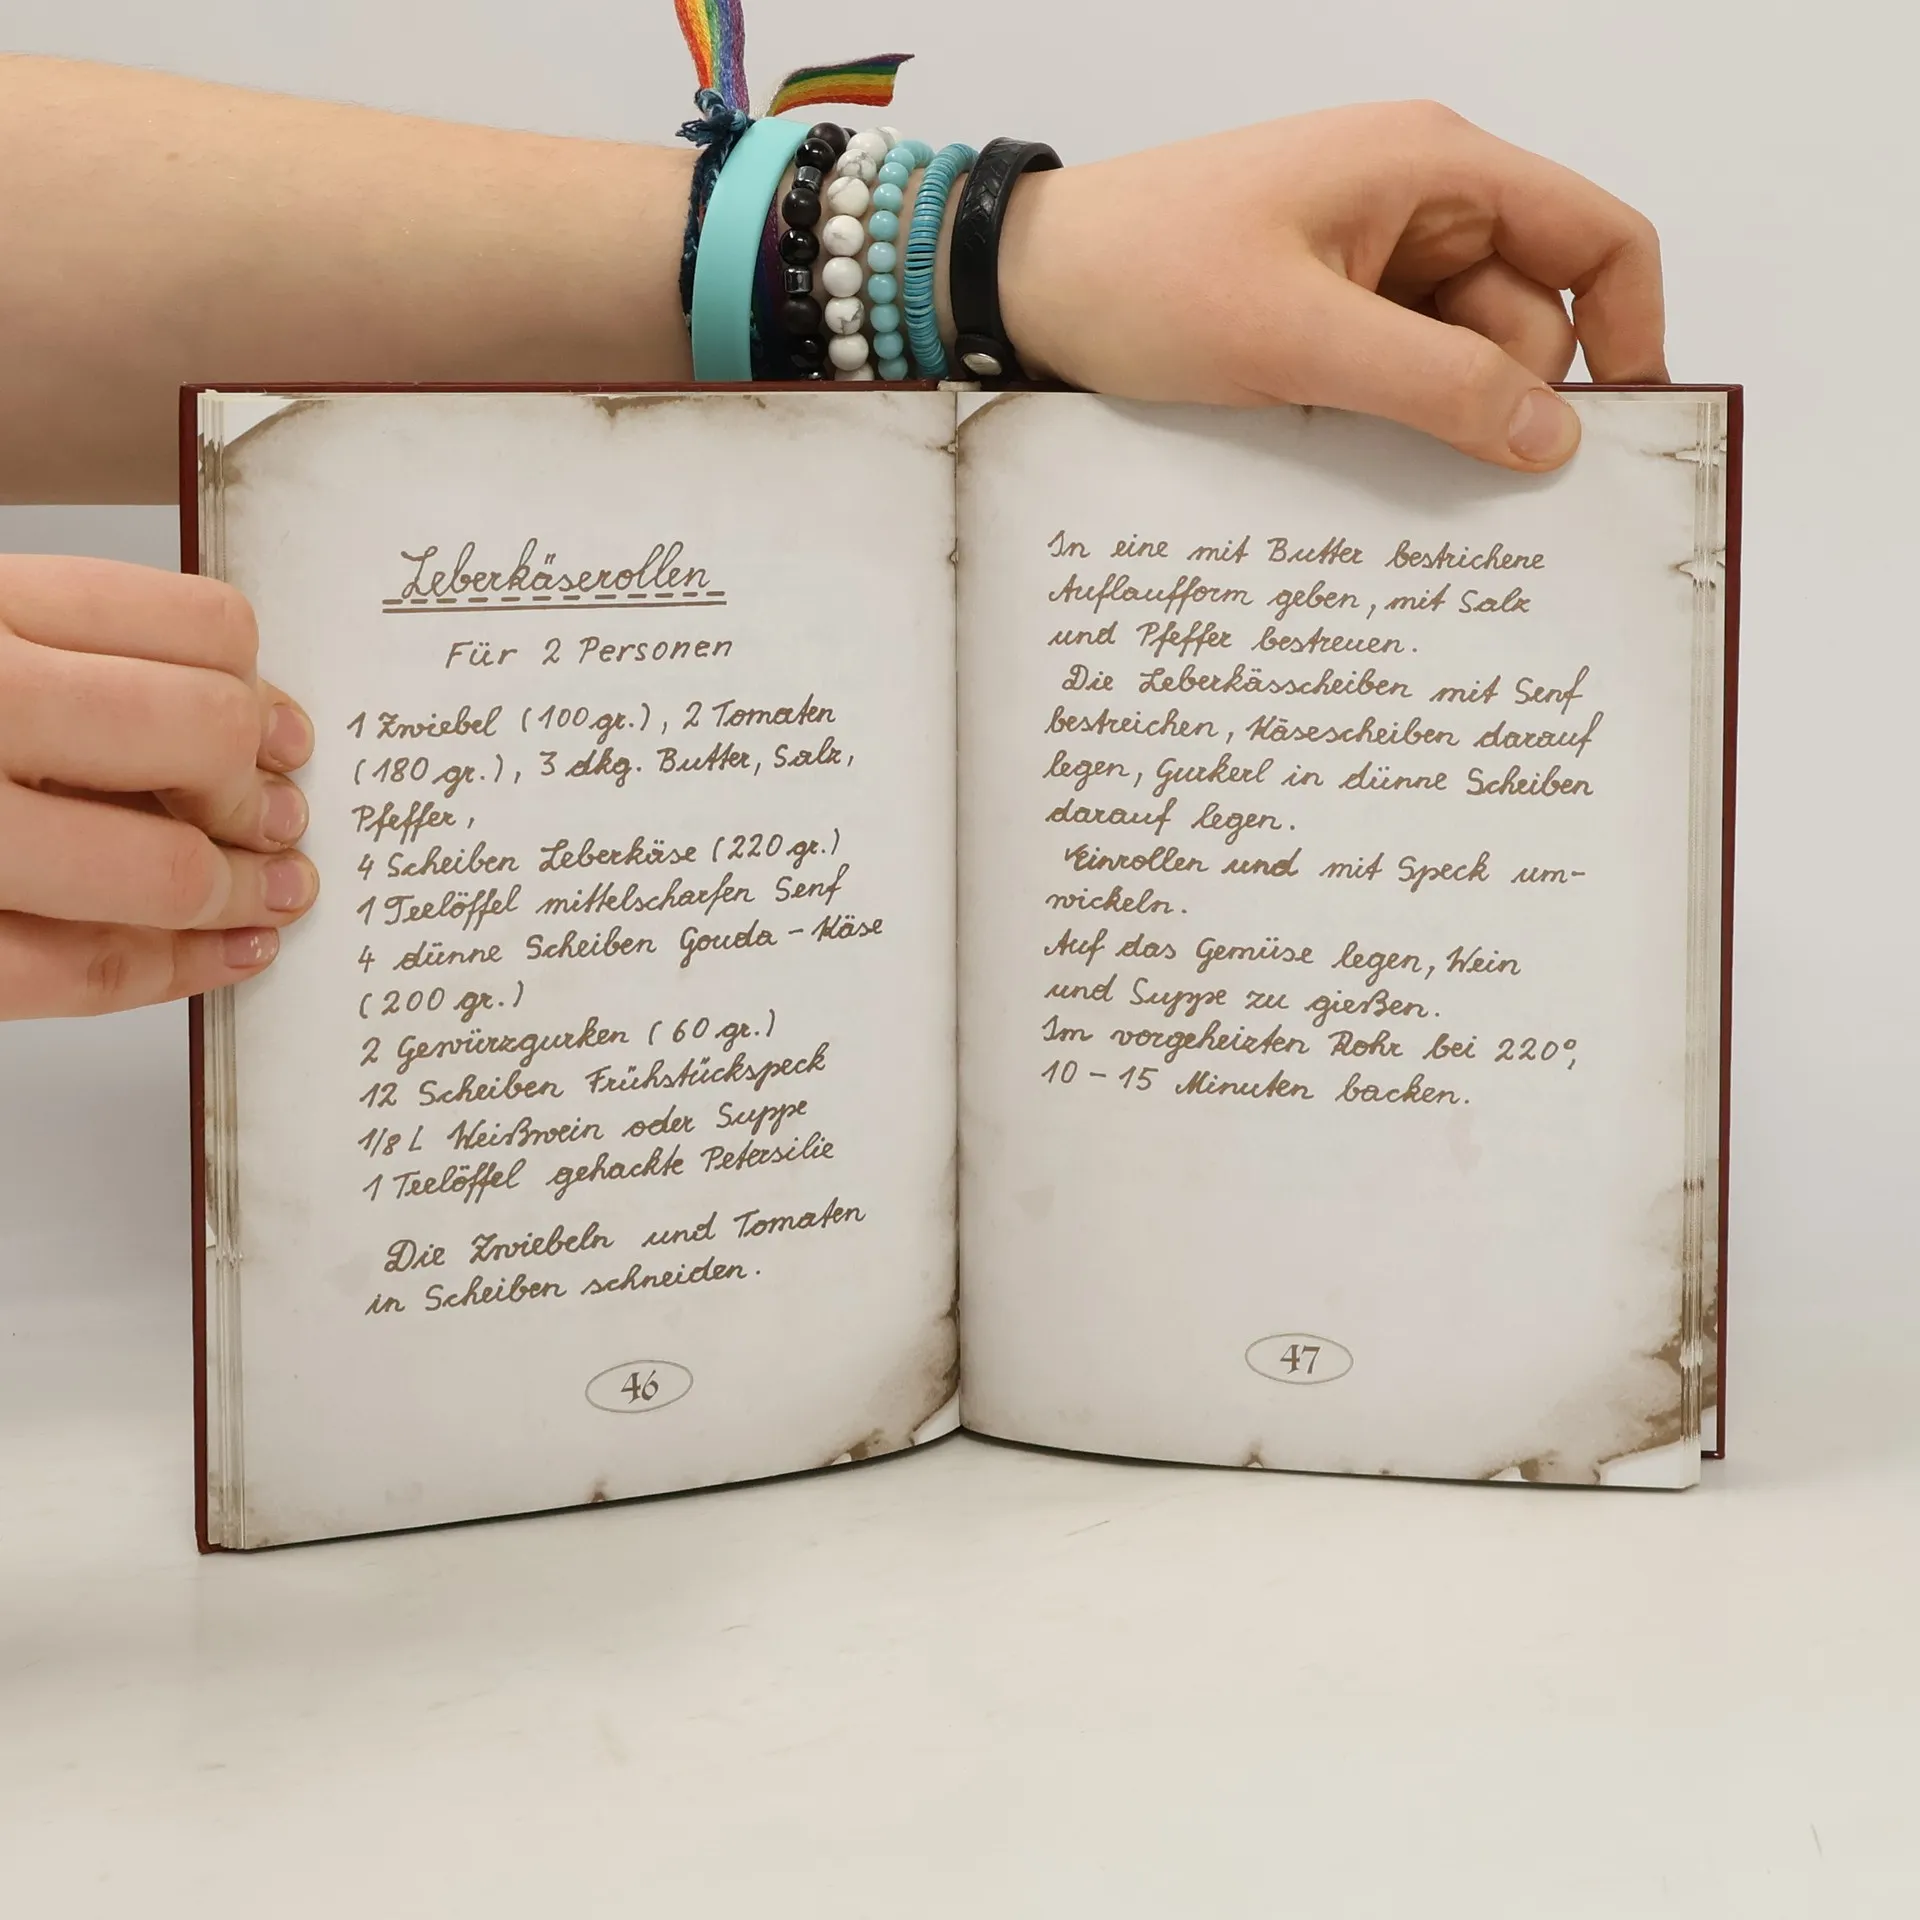 Leberkäserollen
Für 2 Personen
1 Zwiebel (100 gr.), 2 Tomaten
(180 gr.), 3 dkg. Butter, Salz,
Pfeffer,
4 Scheiben Leberkäse (220 gr.)
1 Teelöffel mittelscharfen Senf
4 dünne Scheiben Gouda-Käse
(200 gr.)
2 Gewürzgurken (60 gr.)
12 Scheiben Frühstückspeck
1/8 L Weißwein oder Suppe
1 Teelöffel gehackte Petersilie
Die Zwiebeln und Tomaten
in Scheiben schneiden.
46
In eine mit Butter bestrichene
Auflaufform geben, mit Salz
und Pfeffer bestreuen.
Die Leberkässcheiben mit Senf
bestreichen, Käsescheiben darauf
legen, Gurkerl in dünne Scheiben
darauf legen.
Einrollen und mit Speck um-
wickeln.
Auf das Gemüse legen, Wein
und Suppe zu gießen.
Im vorgeheizten Rohr bei 220°,
10 - 15 Minuten backen.
47